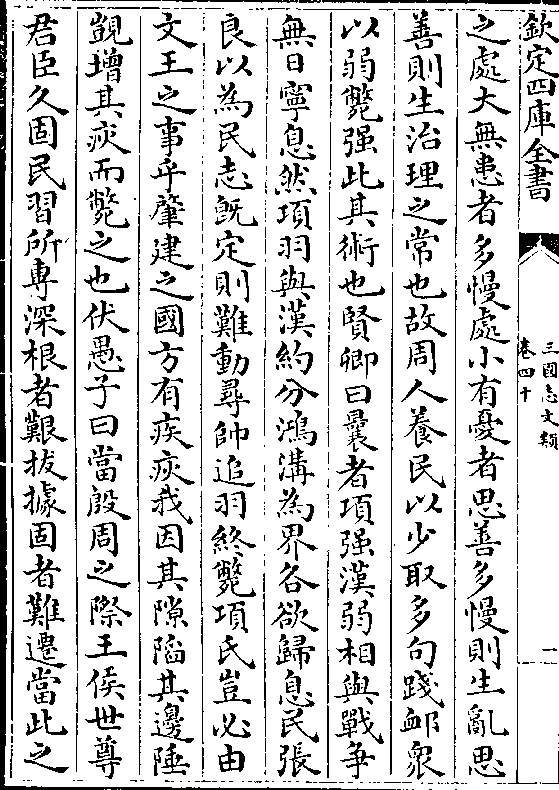 欽定四庫全書
三國志文類
卷四十
一
之處大無患者多慢處小有憂者思善多慢則生亂思
善則生治理之常也故周人養民以少取多句踐䘏衆
以弱斃强此其術也賢卿曰曩者項强漢弱相與戰争
無日寧息然項羽與漢約分鴻溝為界各欲歸息民張
良以為民志既定則難動尋帥追羽終斃項氏豈必由
文王之事乎肇建之國方有疾疢我因其隙陷其邊陲
覬增其疢而斃之也伏愚子曰當殷周之際王侯世尊
君臣久固民習所專深根者艱拔據固者難遷當此之